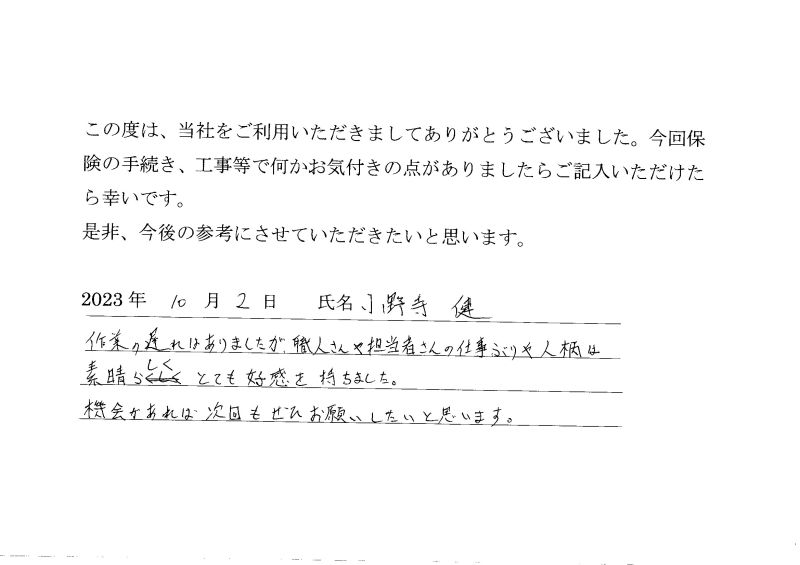 この度は、当社をご利用いただきましてありがとうございました。今回保
険の手続き、工事等で何かお気付きの点がありましたらご記入いただけた
ら幸いです。
是非、今後の参考にさせていただきたいと思います。
2023 年 10 月 2 日 氏名 小野寺 健
作業の遅れはありましたが、職人さんや担当者さんの仕事ぶりや人柄は
素晴らしく とても好感を持ちました。
機会があれば次回もぜひお願いしたいと思います。